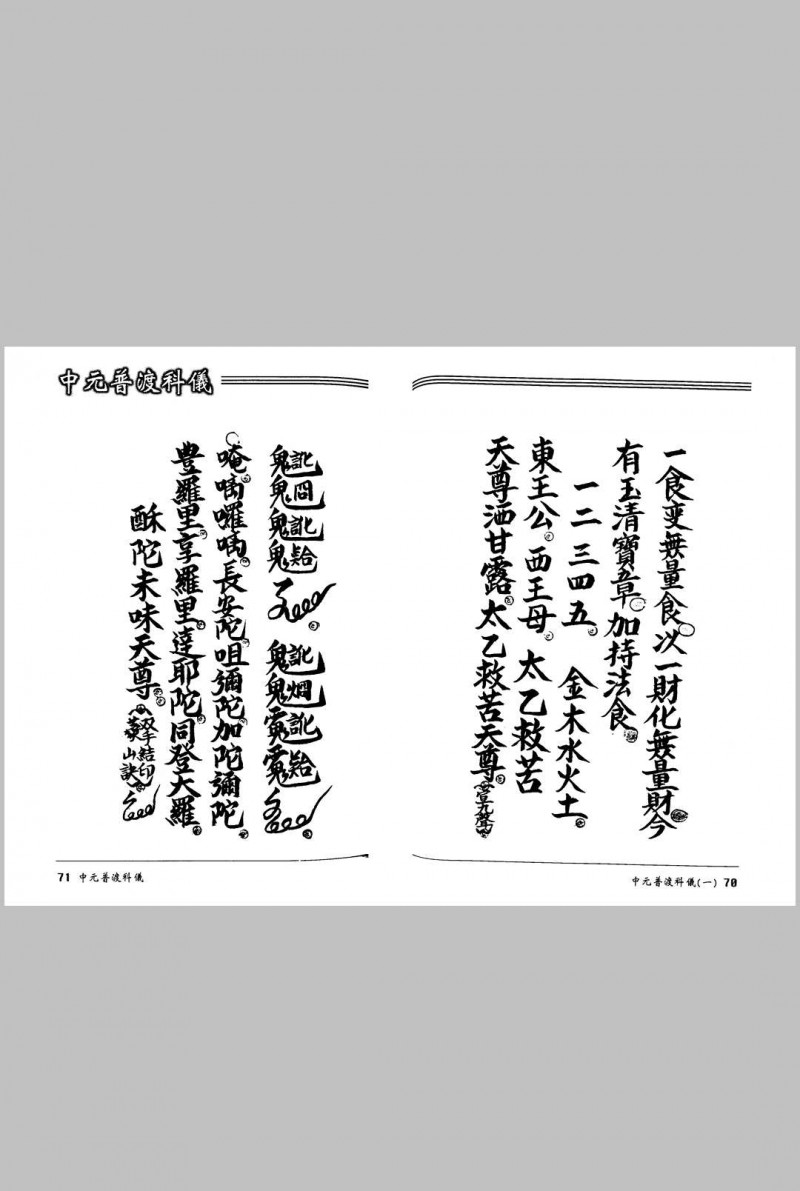 一食变無量食以一財化無量財今
有玉清寶章加持法食
一二三四五 金木水火土
東王公西王母太乙救苦
天尊洒甘露太乙救苦天尊
中元普渡科儀(一) 70
中元普渡科儀
唵 囉 長安陀咀彌陀加陀彌陀
豊羅里享羅里達耶陀同登大羅
酥陀未味天尊
結印
蒙山訣
71 中元普渡科儀